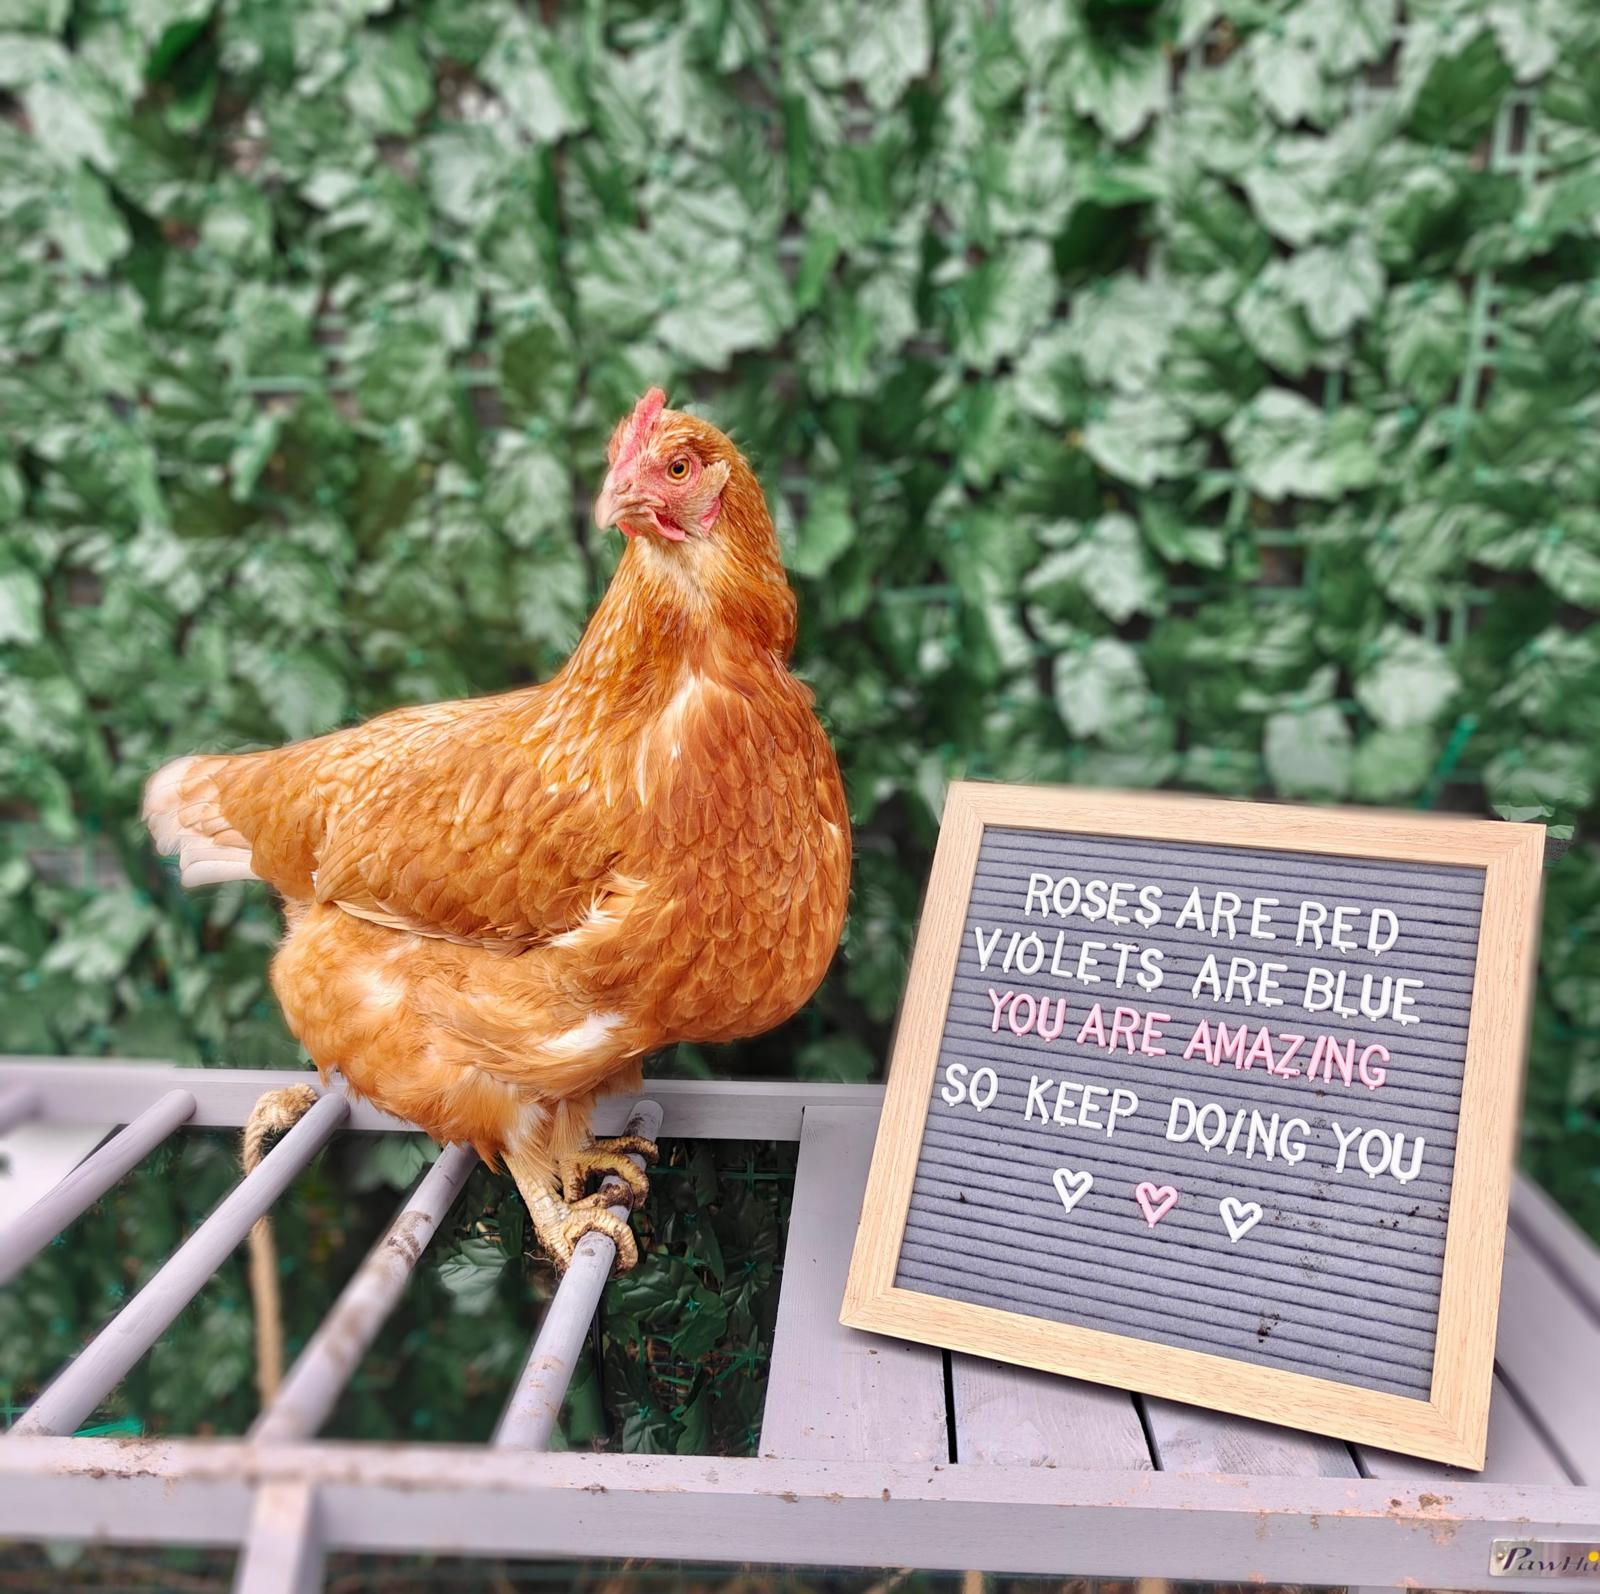 ROSES ARE RED
VIOLETS ARE BLUE
YOU ARE AMAZING
SO KEEP DOING YOU